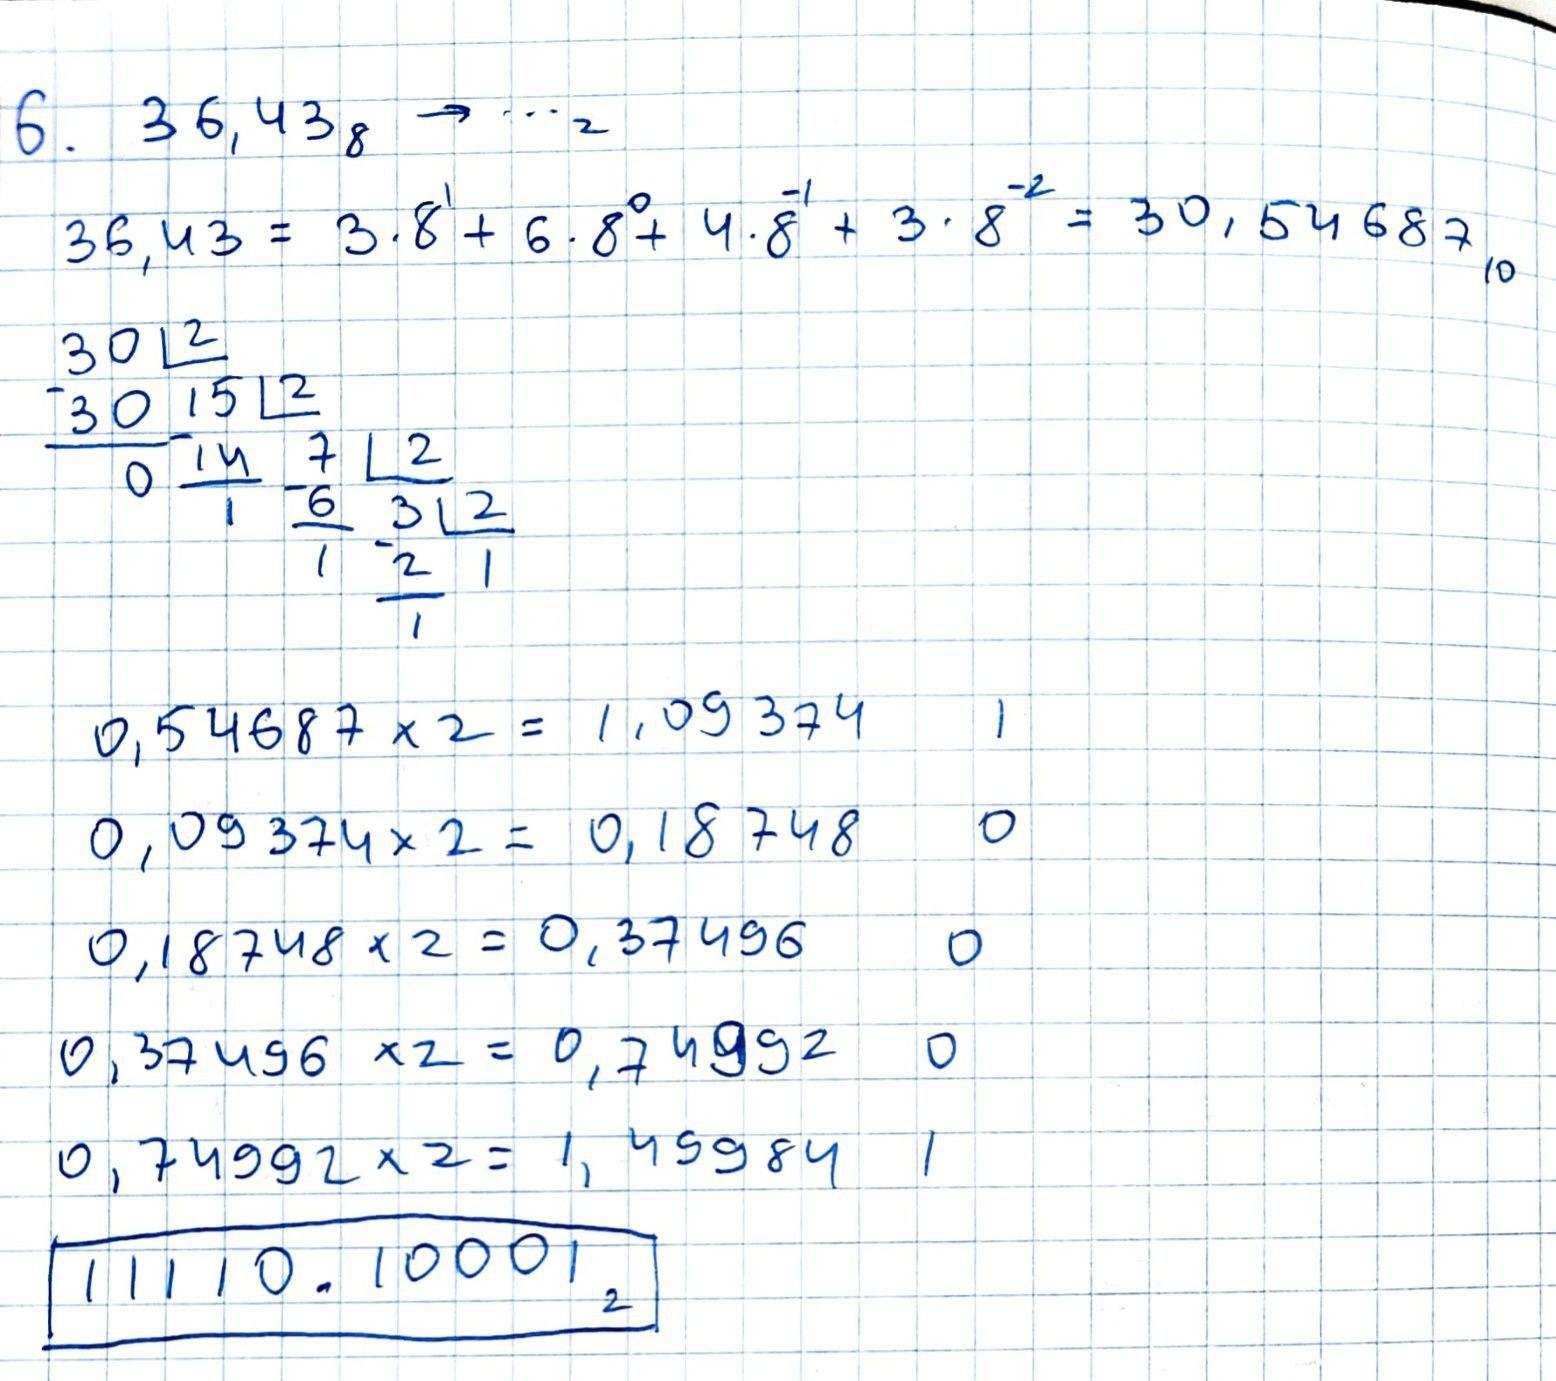 6. 36,43₈ → ...₂
36,43 = 3·8¹ + 6·8⁰ + 4·8⁻¹ + 3·8⁻² = 30,54687₁₀
30 2
-30 15 2
0 -14 7 2
1 -6 3 2
1 -2 1
1
0,54687 × 2 = 1,09374 1
0,09374 × 2 = 0,18748 0
0,18748 × 2 = 0,37496 0
0,37496 × 2 = 0,74992 0
0,74992 × 2 = 1,49984 1
11110.10001₂